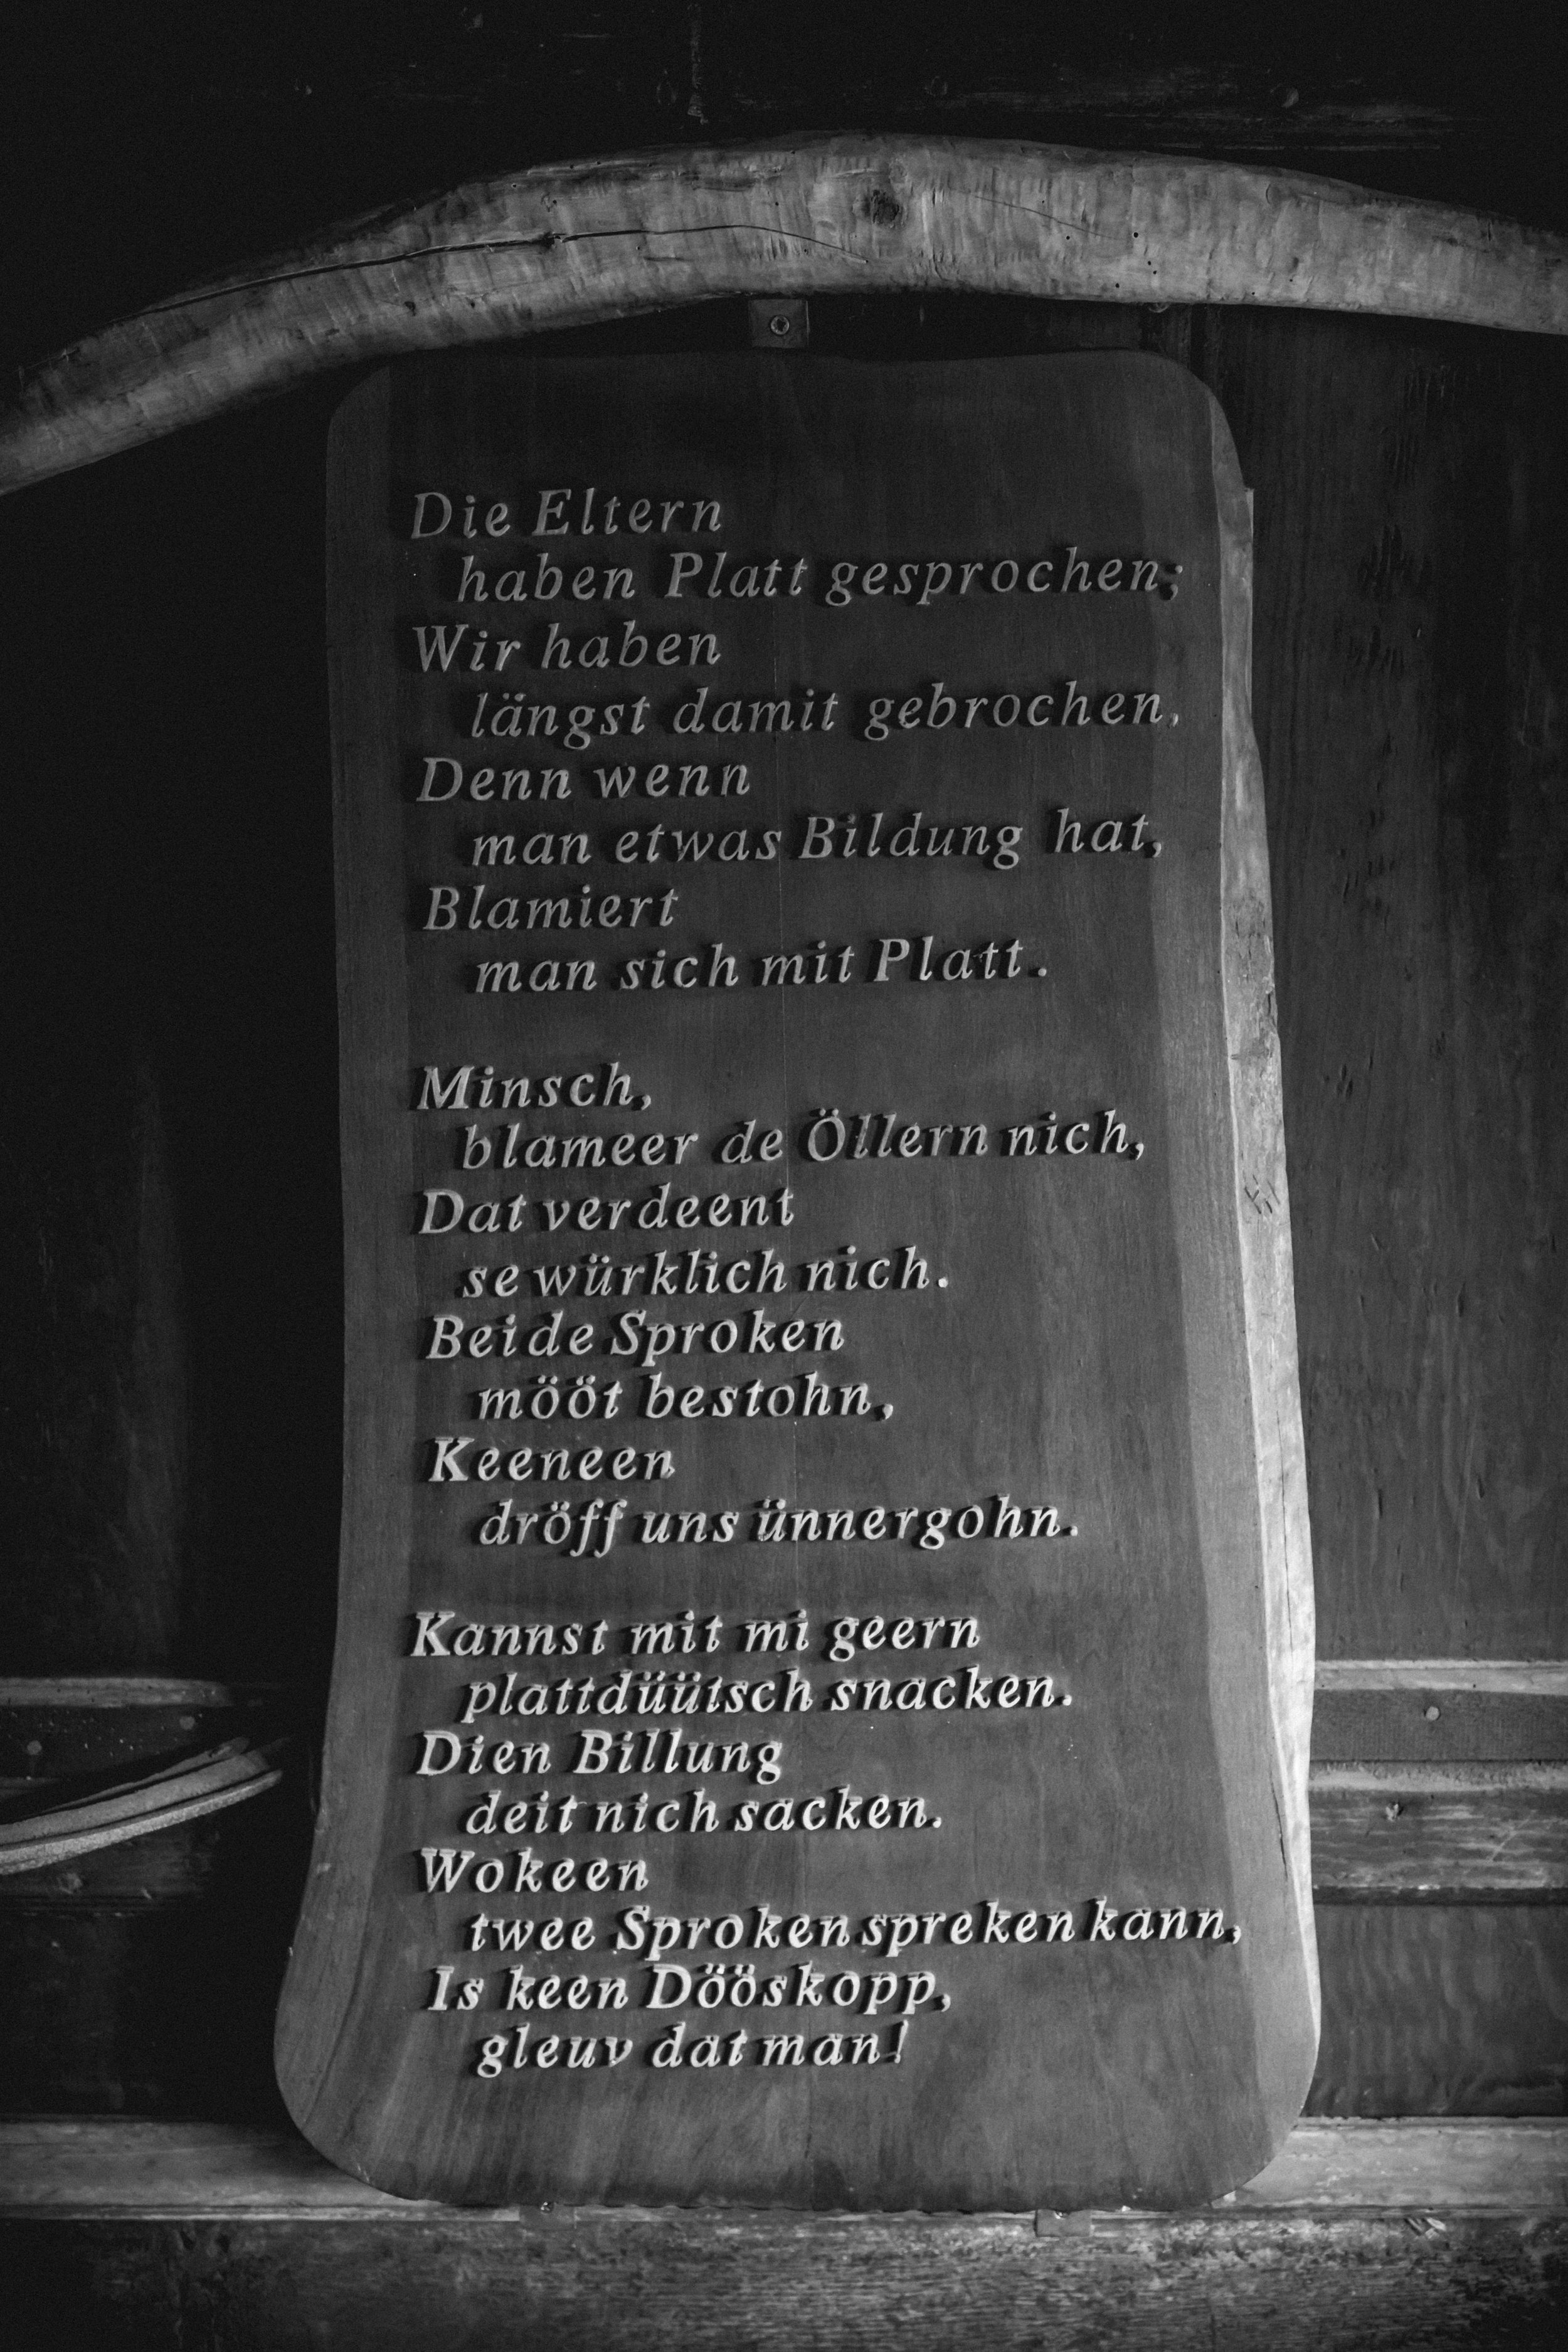 Die Eltern
haben Platt gesprochen;
Wir haben
längst damit gebrochen,
Denn wenn
man etwas Bildung hat,
Blamiert
man sich mit Platt.
Minsch,
blameer de Öllern nich,
Dat verdeent
se würklich nich.
Beide Sproken
mööt bestohn,
Keeneen
dröff uns ünnergohn.
Kannst mit mi geern
plattdüütsch snacken.
Dien Billung
deit nich sacken.
Wokeen
twee Sproken spreken kann,
Is keen Dööskopp,
gleuv dat man!